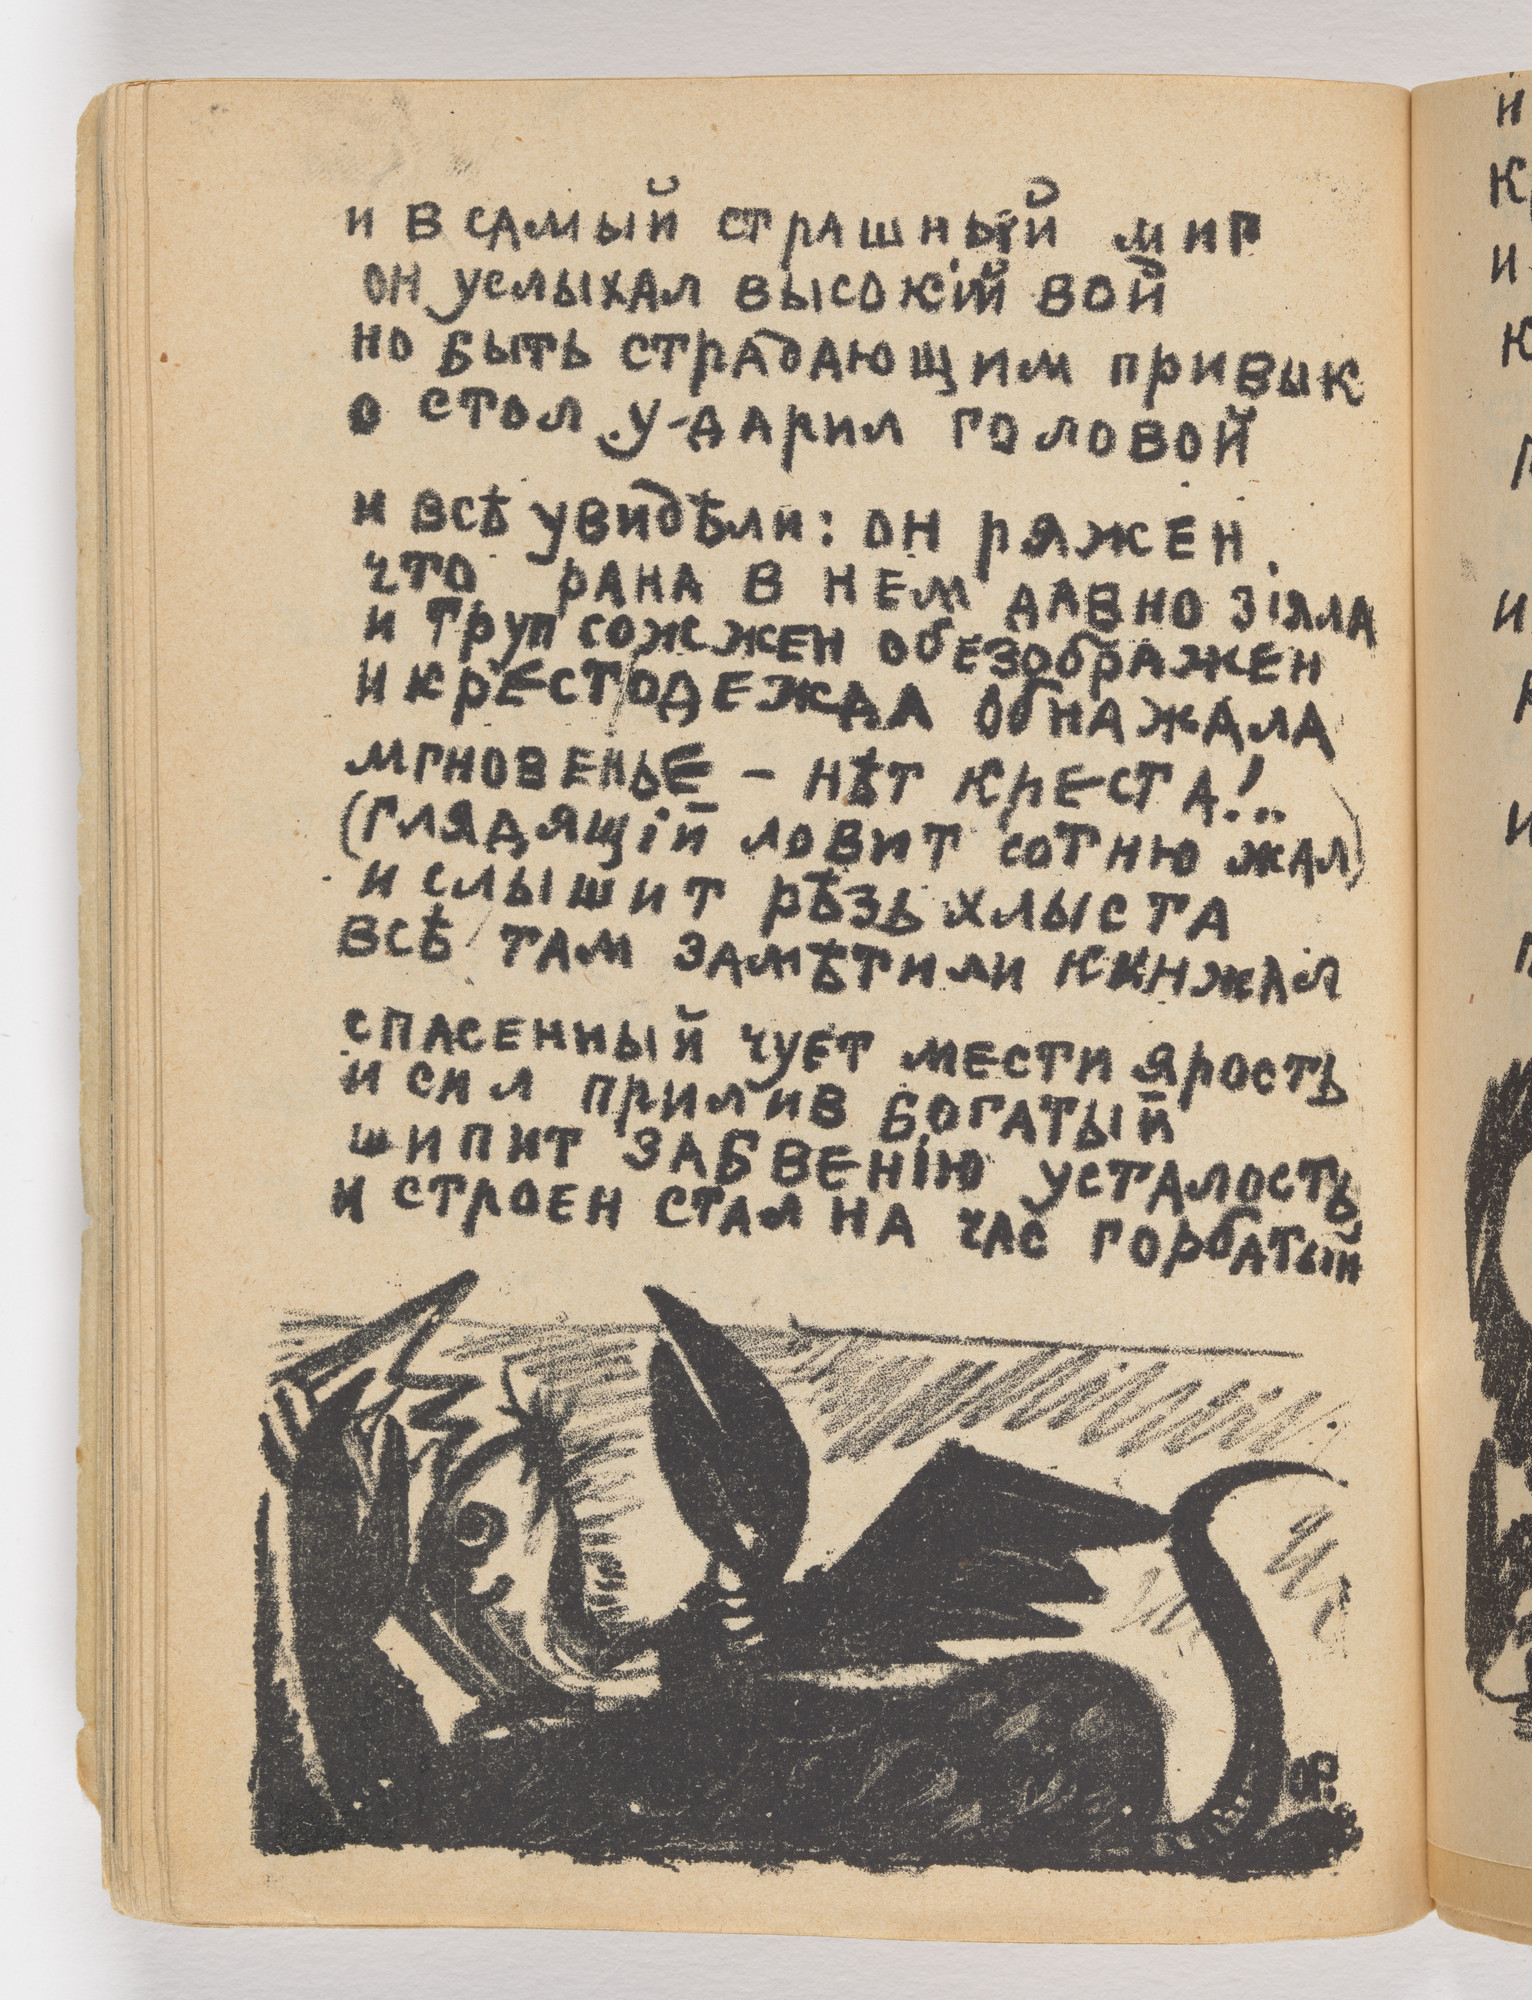 и в самый страшный миг
он услыхал высокій вой
но быть страдающим привык
о стол у-дарил головой
и всѣ увидѣли: он ряжен
что рана в нем давно зіяла
и труп сожжен обезображен
и крест одежда обнажала
мгновенье – нѣт креста!..
(глядящій ловит сотню жал)
и слышит рѣзь хлыста
всѣ там замѣтили кинжал
спасенный чует мести ярость
и сил прилив богатый
шипит забвенію усталость
и строен стал на час горбатый
ОР.